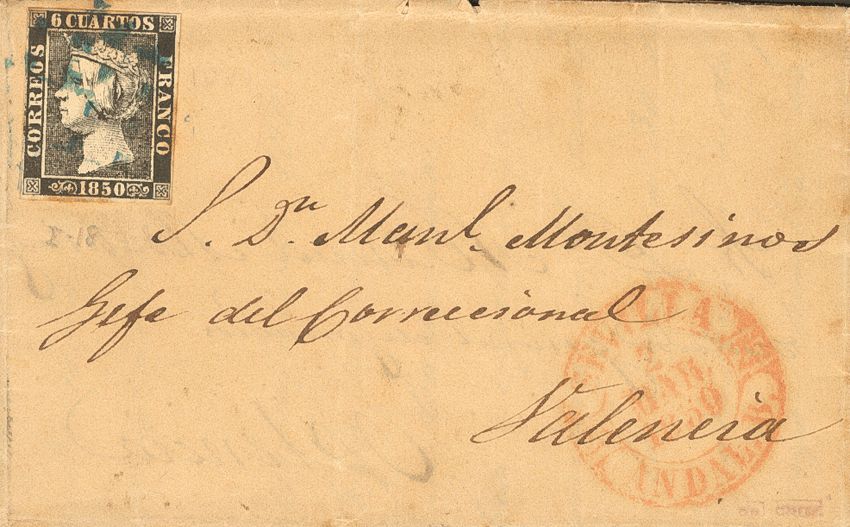 6 CUARTOS
CORREOS
FRANCO
1850
S. Dn. Manl. Montesinos
Gefe del Correccional
Valencia
SEVILLA
MAR.
1850
ANDAL